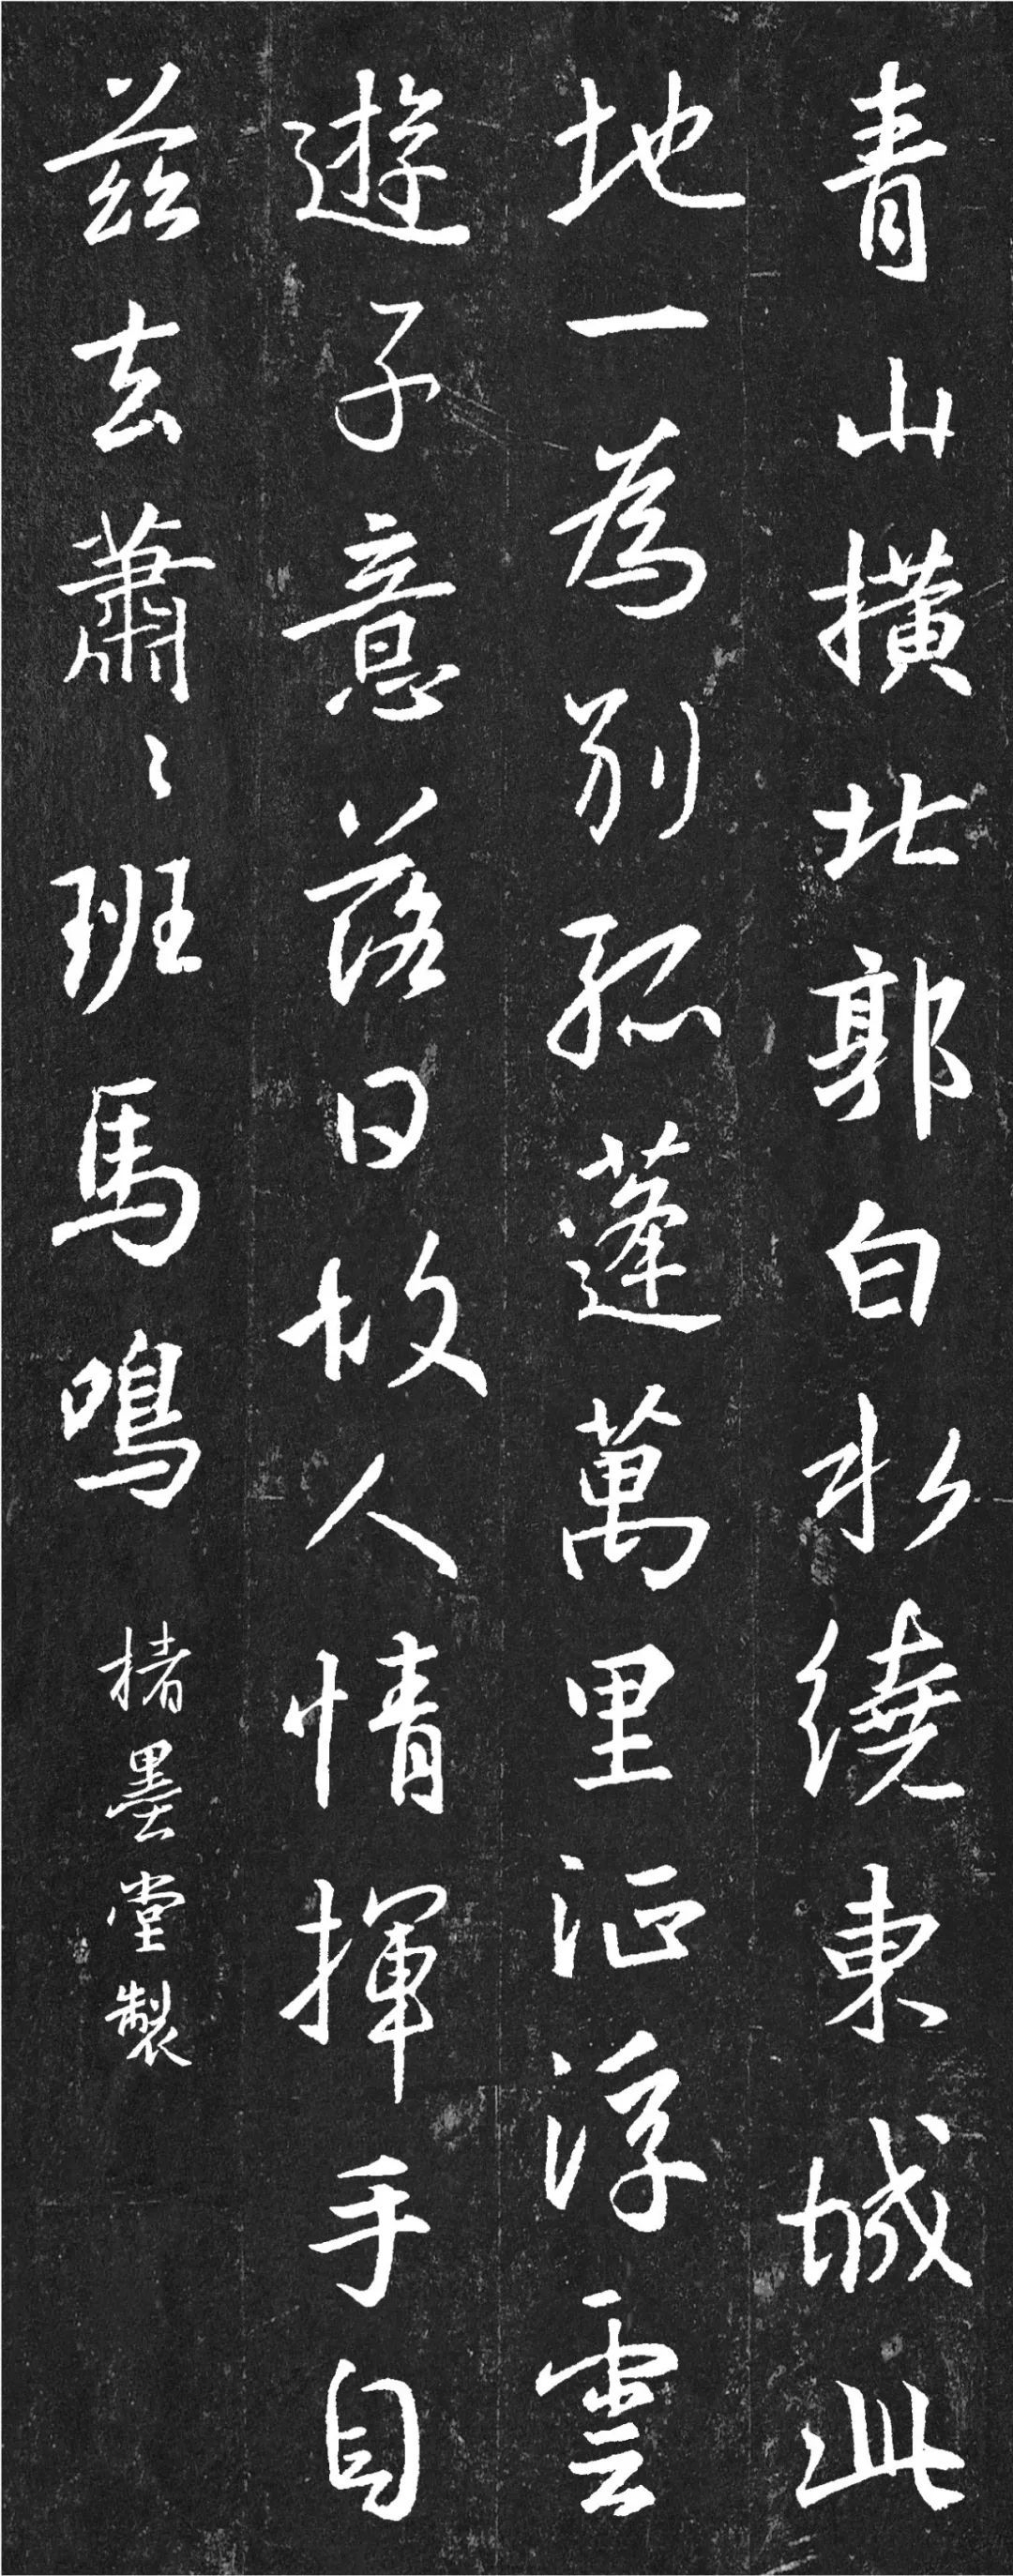 青山横北郭白水繞東城此
地一為别孤蓬萬里征浮雲
遊子意落日故人情揮手自
茲去蕭〻班馬鳴
楮墨堂製